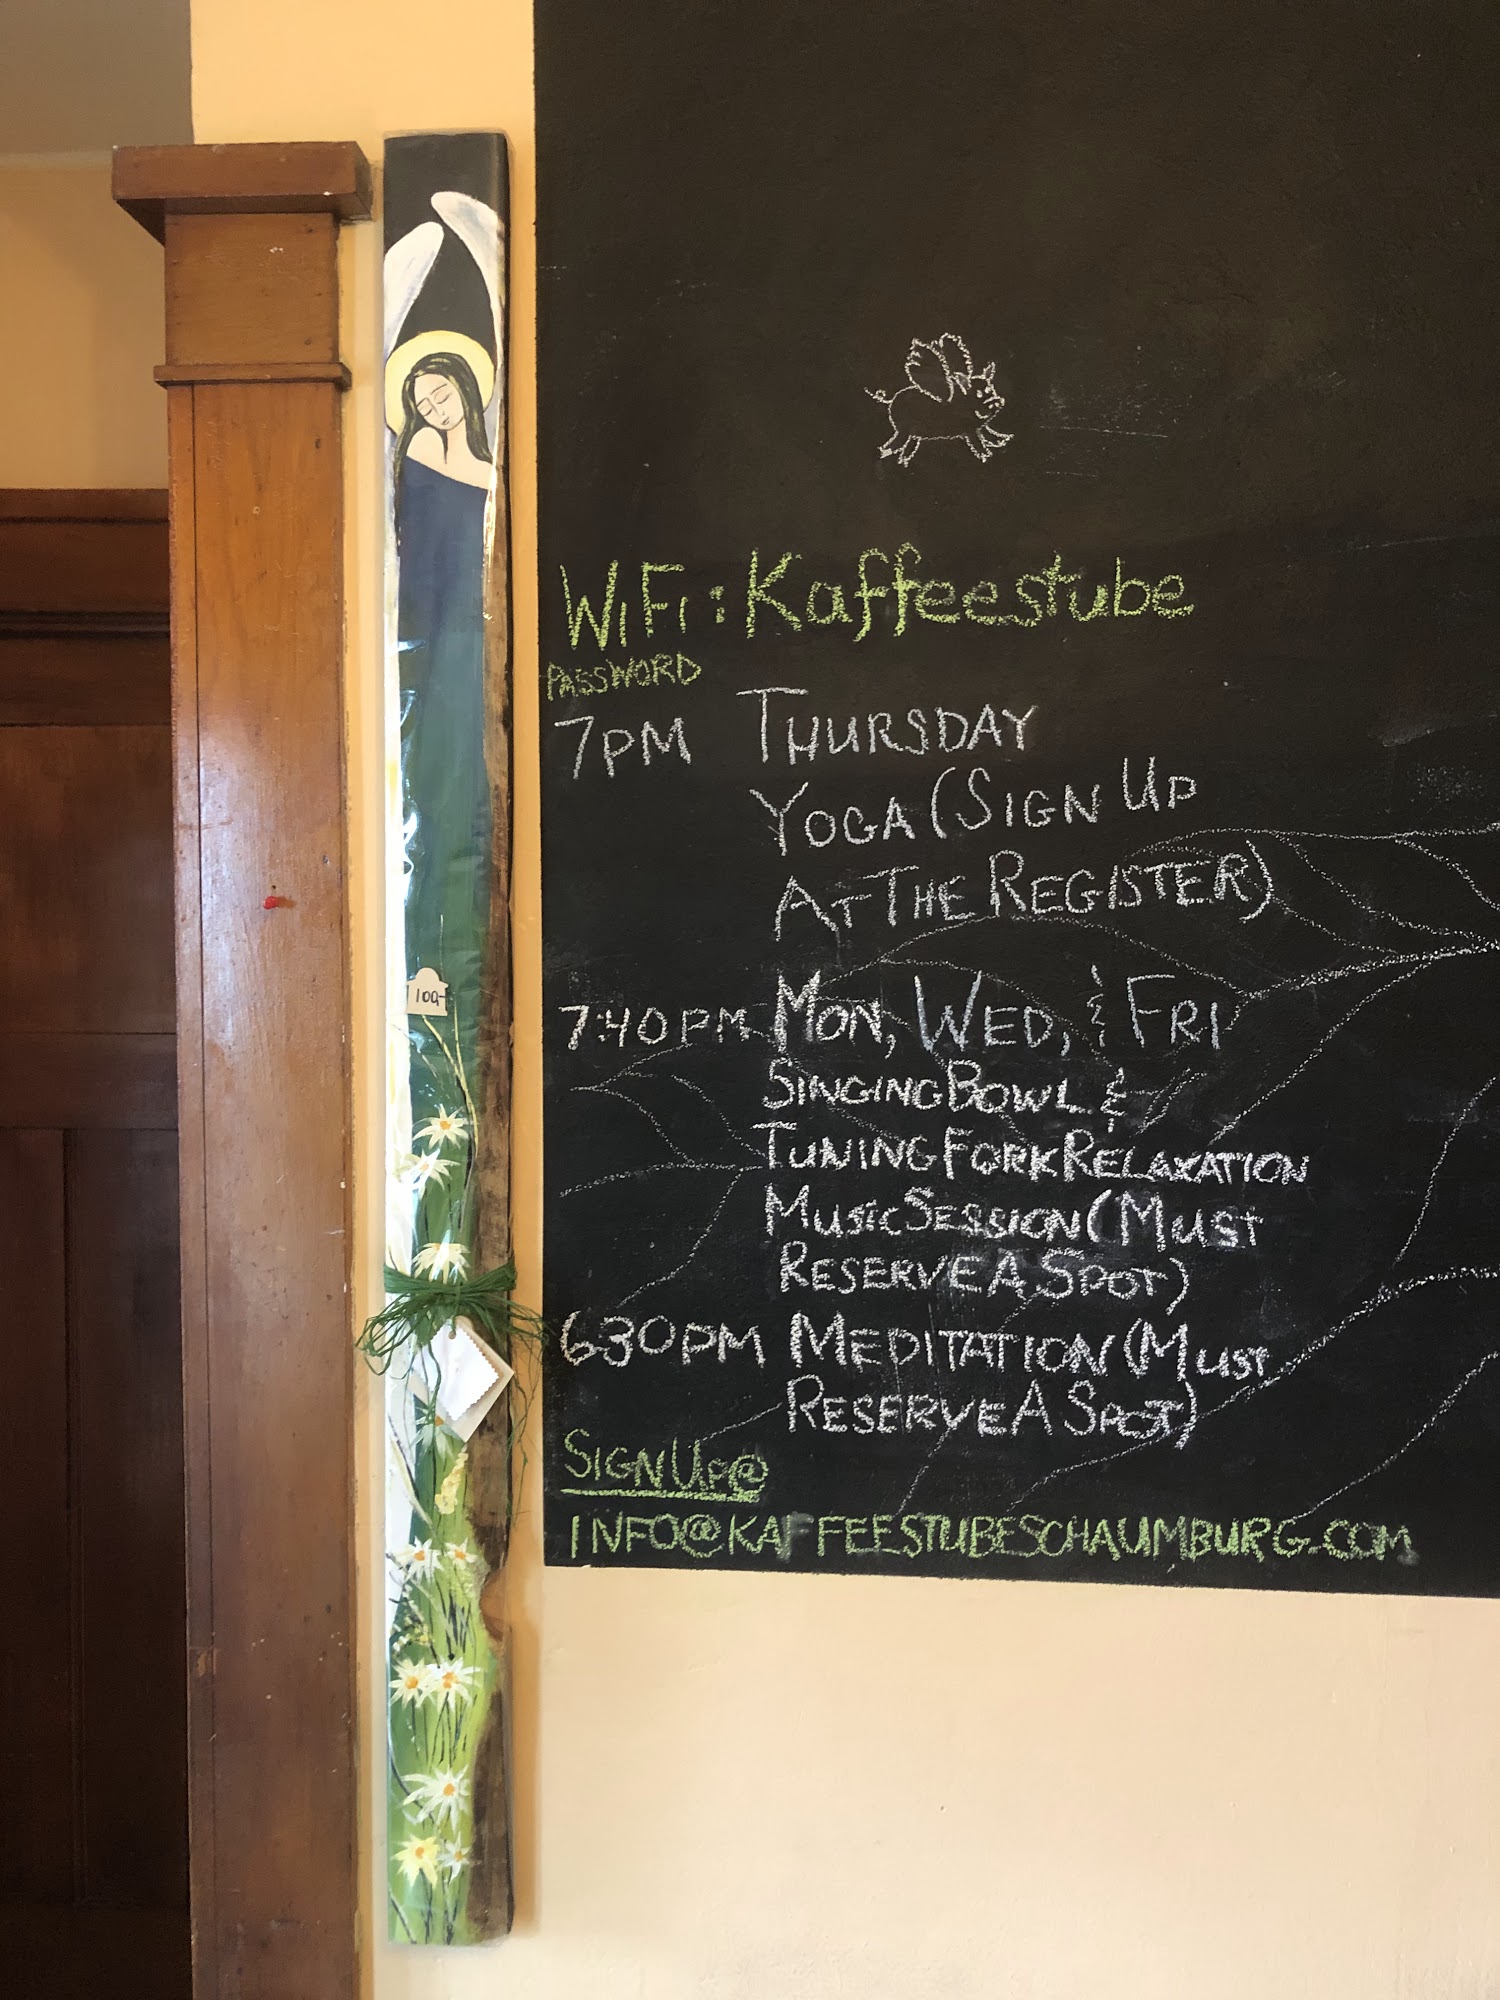 WiFi: Kaffeestube
PASSWORD
7PM THURSDAY
YOGA (SIGN UP
AT THE REGISTER)
7:40PM MON, WED, & FRI
SINGING BOWL &
TUNING FORK RELAXATION
MUSIC SESSION (MUST
RESERVE A SPOT)
630PM MEDITATION (MUST
RESERVE A SPOT)
SIGN UP@
INFO@KAFFEESTUBESCHAUMBURG.COM
100-